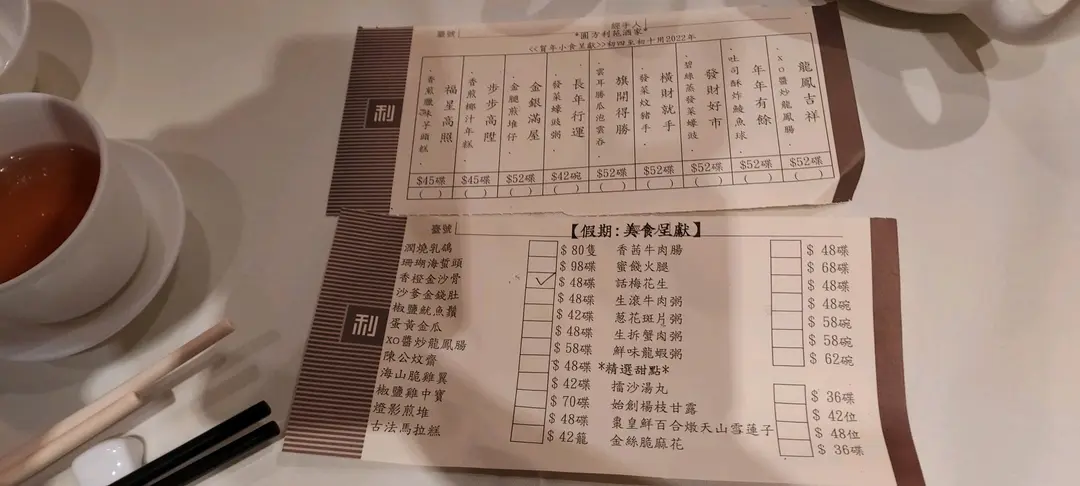 臺號 經手人
*圓方利苑酒家*
<<賀年小食呈獻>>初四至初十用2022年
龍鳳吉祥
·XO醬炒龍鳳腸·
$52碟
年年有餘
·吐司酥炸鯪魚球·
$52碟
發財好市
·碧綠蒸發菜蠔豉·
$52碟
橫財就手
·發菜炆豬手·
$52碟
旗開得勝
·雲耳勝瓜泡雲吞·
$52碟
長年行運
·發菜蠔豉粥·
$42碗
金銀滿屋
·金腿煎堆仔·
$52碟
步步高陞
·香煎椰汁年糕·
$45碟
福星高照
·香煎臘味糕·
$45碟
利
臺號 【假期:美食呈獻】
潤燒乳鴿 $80隻
珊瑚海蜇頭 $98碟
香橙金沙骨 $48碟
沙爹金錢肚 $48碟
椒鹽魷魚鬚 $42碟
蛋黃金瓜 $48碟
XO醬炒龍鳳腸 $58碟
陳公炆齋 $48碟
海山脆雞翼 $42碟
椒鹽雞中寶 $70碟
燈影煎堆 $48碟
古法馬拉糕 $42籠
香茜牛肉腸 $48碟
蜜餞火腿 $68碟
話梅花生 $48碟
生滾牛肉粥 $48碗
葱花斑片粥 $58碗
生拆蟹肉粥 $58碗
鮮味龍蝦粥 $62碗
*精選甜點*
擂沙湯丸 $36碟
始創楊枝甘露 $42位
棗皇鮮百合燉天山雪蓮子 $48位
金絲脆麻花 $36碟
利